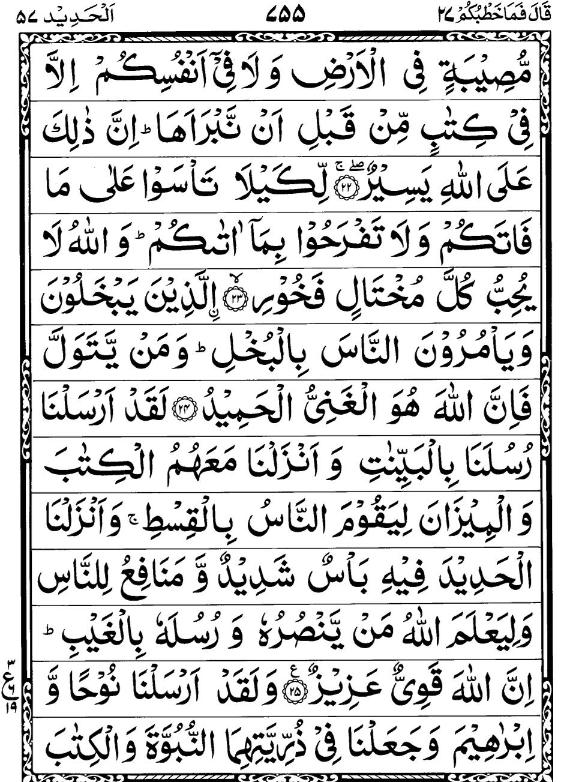 قَالَ فَمَا خَطْبُكُمْ ٢٧ ٧٥٥ اَلْحَدِيْد ٥٧
مُّصِيْبَةٍ فِي الْاَرْضِ وَ لَا فِيْۤ اَنْفُسِكُمْ اِلَّا
فِيْ كِتٰبٍ مِّنْ قَبْلِ اَنْ نَّبْرَاَهَا ؕ اِنَّ ذٰلِكَ
عَلَى اللّٰهِ يَسِيْرٌ ۖۚ ﴿٢٢﴾ لِّكَيْلَا تَاْسَوْا عَلٰى مَا
فَاتَكُمْ وَ لَا تَفْرَحُوْا بِمَاۤ اٰتٰىكُمْ ؕ وَ اللّٰهُ لَا
يُحِبُّ كُلَّ مُخْتَالٍ فَخُوْرِ ۙ ﴿٢٣﴾ اِۨلَّذِيْنَ يَبْخَلُوْنَ
وَيَاْمُرُوْنَ النَّاسَ بِالْبُخْلِ ؕ وَمَنْ يَّتَوَلَّ
فَاِنَّ اللّٰهَ هُوَ الْغَنِيُّ الْحَمِيْدُ ﴿٢٤﴾ لَقَدْ اَرْسَلْنَا
رُسُلَنَا بِالْبَيِّنٰتِ وَ اَنْزَلْنَا مَعَهُمُ الْكِتٰبَ
وَ الْمِيْزَانَ لِيَقُوْمَ النَّاسُ بِالْقِسْطِ ۚ وَاَنْزَلْنَا
الْحَدِيْدَ فِيْهِ بَاْسٌ شَدِيْدٌ وَّ مَنَافِعُ لِلنَّاسِ
وَلِيَعْلَمَ اللّٰهُ مَنْ يَّنْصُرُهٗ وَ رُسُلَهٗ بِالْغَيْبِ ؕ
اِنَّ اللّٰهَ قَوِيٌّ عَزِيْزٌ ﴿٢٥﴾ ع وَلَقَدْ اَرْسَلْنَا نُوْحًا وَّ
٣ ع ٦ ١٩
اِبْرٰهِيْمَ وَجَعَلْنَا فِيْ ذُرِّيَّتِهِمَا النُّبُوَّةَ وَالْكِتٰبَ